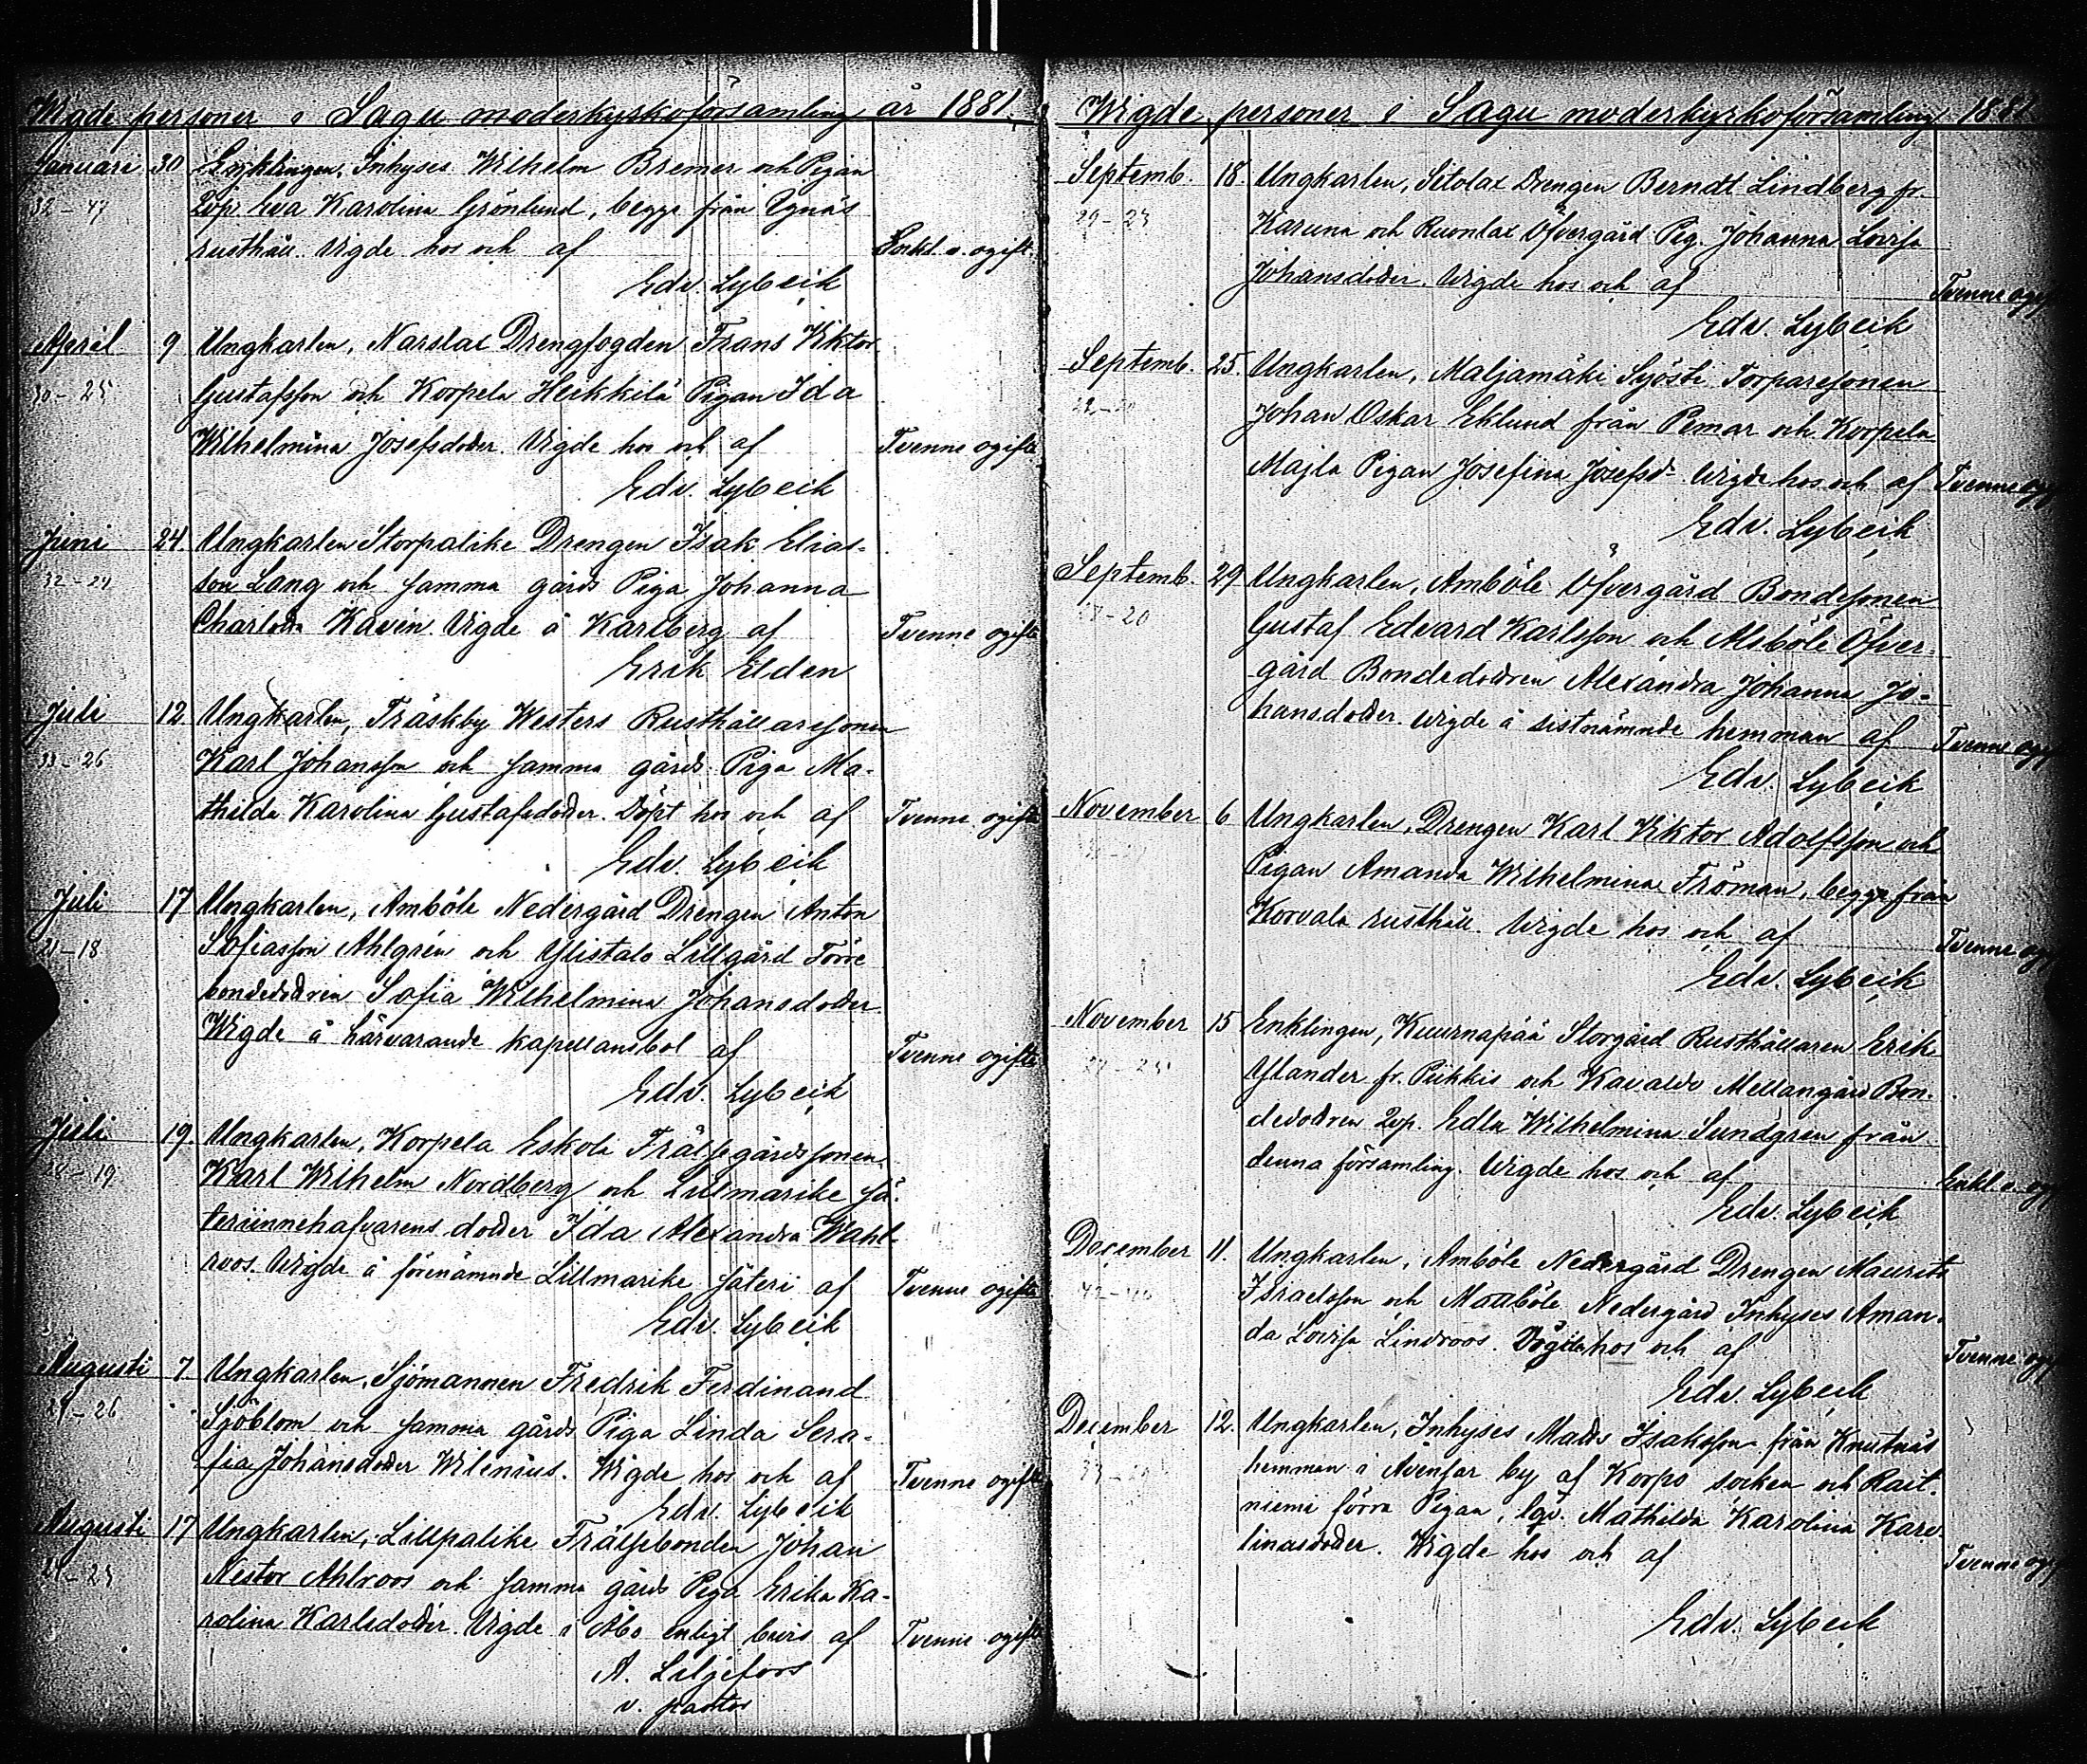 Wigde personer i Sagu moderkyrkoförsamling år 1881.
Januari 30 Enklingen, Inhyses Wilhelm Bremer och Pigan
32-47 Eva Karolina Grönlund, begge från
rusthåll. Vigde hos och af Enkl. o. ogift.
Edv. Lybeck
April 9 Ungkarlen, Narslax Drengfogden Frans Viktor
30-25 Gustafsson och Korpela Heikkilä Pigan Ida
Wilhelmina Josefsdoter. Vigde hos och af Tvenne ogifte
Edv. Lybeck
Juni 24 Ungkarlen Storpalike Drengen Isak Elias-
son Lang och samma gårds Piga Johanna
Charlotta Kavén. Vigde å Karlberg af Tvenne ogifte
Erik Elden
Juli 12 Ungkarlen, Träskby Westers Rusthållaresonen
33-26 Karl Johansson och samma gårds Piga Ma-
thilda Karolina Gustafsdotter. Döpt hos och af Tvenne ogifte
Edv. Lybeck
Juli 17 Ungkarlen, Amböle Nedergård Drengen Anton
21-18 Sofiasson Ahlgrén och Ylistalo Lillgård Förre
bondedottren Sofia Wilhelmina Johansdotter
Wigde å härvarande kapellansbol af Tvenne ogifte
Edv. Lybeck
Juli 19. Ungkarlen, Korpela Eskola Frälsegårdssonen
Karl Wilhelm Nordberg och Lillmarike Sä-
teriinnehafvarens dotter Ida Alexandra Wahl-
roos. Wigde å förenämnde Lillmarike säteri af Tvenne ogifte
Edv. Lybeck
Augusti 7. Ungkarlen, Sjömannen Fredrik Ferdinand
Sjöblom och samma gårds Piga Linda Sera-
fia Johansdotter Wilenius. Wigde hos och af Tvenne ogifte
Edv. Lybeck
Augusti 17 Ungkarlen, Lillpalike Frälsebonden Johan
Nestor Ahlroos och samma gårds Piga Erika Ka-
rolina Karlsdotter. Vigde i Åbo enligt bevis af Tvenne ogifte
A. Liljefors
v. pastor
Wigde personer i Sagu moderkyrkoförsamling 1881.
Septemb. 18. Ungkarlen, Sitolax Drengen Berndt Lindberg fr.
29-23 Karuna och Ruonlax Öfvergård Pig. Johanna Lovisa
Johansdotter. Wigde hos och af Tvenne ogif
Edv. Lybeck
Septemb. 25. Ungkarlen, Maljamäki Torparesonen
Johan Oskar Eklund från Pemar och Korpela
Majla Pigan Josefina Josefsd. Wigde hos och af Tvenne og
Edv. Lybeck
Septemb. 29 Ungkarlen, Amböle Öfvergård Bondesonen
Gustaf Edvard Karlsson och Alsböle Öfver-
gård Bondedottren Alexandra Johanna Jo-
hansdotter. Wigde å sistnämnde hemman af Tvenne og
Edv. Lybeck
November 6 Ungkarlen, Drengen Karl Viktor Adolfsson och
Pigan Amanda Wilhelmina Fröman, begge från
Korvala rusthåll. Wigde hos och af Tvenne og
Edv. Lybeck
November 15 Enklingen, Kuurnapää Storgård Rusthållaren Erik
Ylander fr. Pikkis och Kaivaldo Mellangård Bon-
dedottren Edla Wilhelmina Sundgren från
denna församling. Wigde hos och af Enkl. o. og
Edv. Lybeck
December 11. Ungkarlen, Amböle Nedergård Drengen Maurits
Israelsson och Mattböle Nedergård Inhyses Aman-
da Lovisa Lindroos. Vigde hos och af Tvenne og
Edv. Lybeck
December 12. Ungkarlen, Inhyses Matts Isaksson från Knutnäs
hemman i Åvensar by af Korpo socken och Rait-
niemi förra Pigan, Mathilda Karolina Karo-
linasdotter. Wigde hos och af Tvenne og
Edv. Lybeck